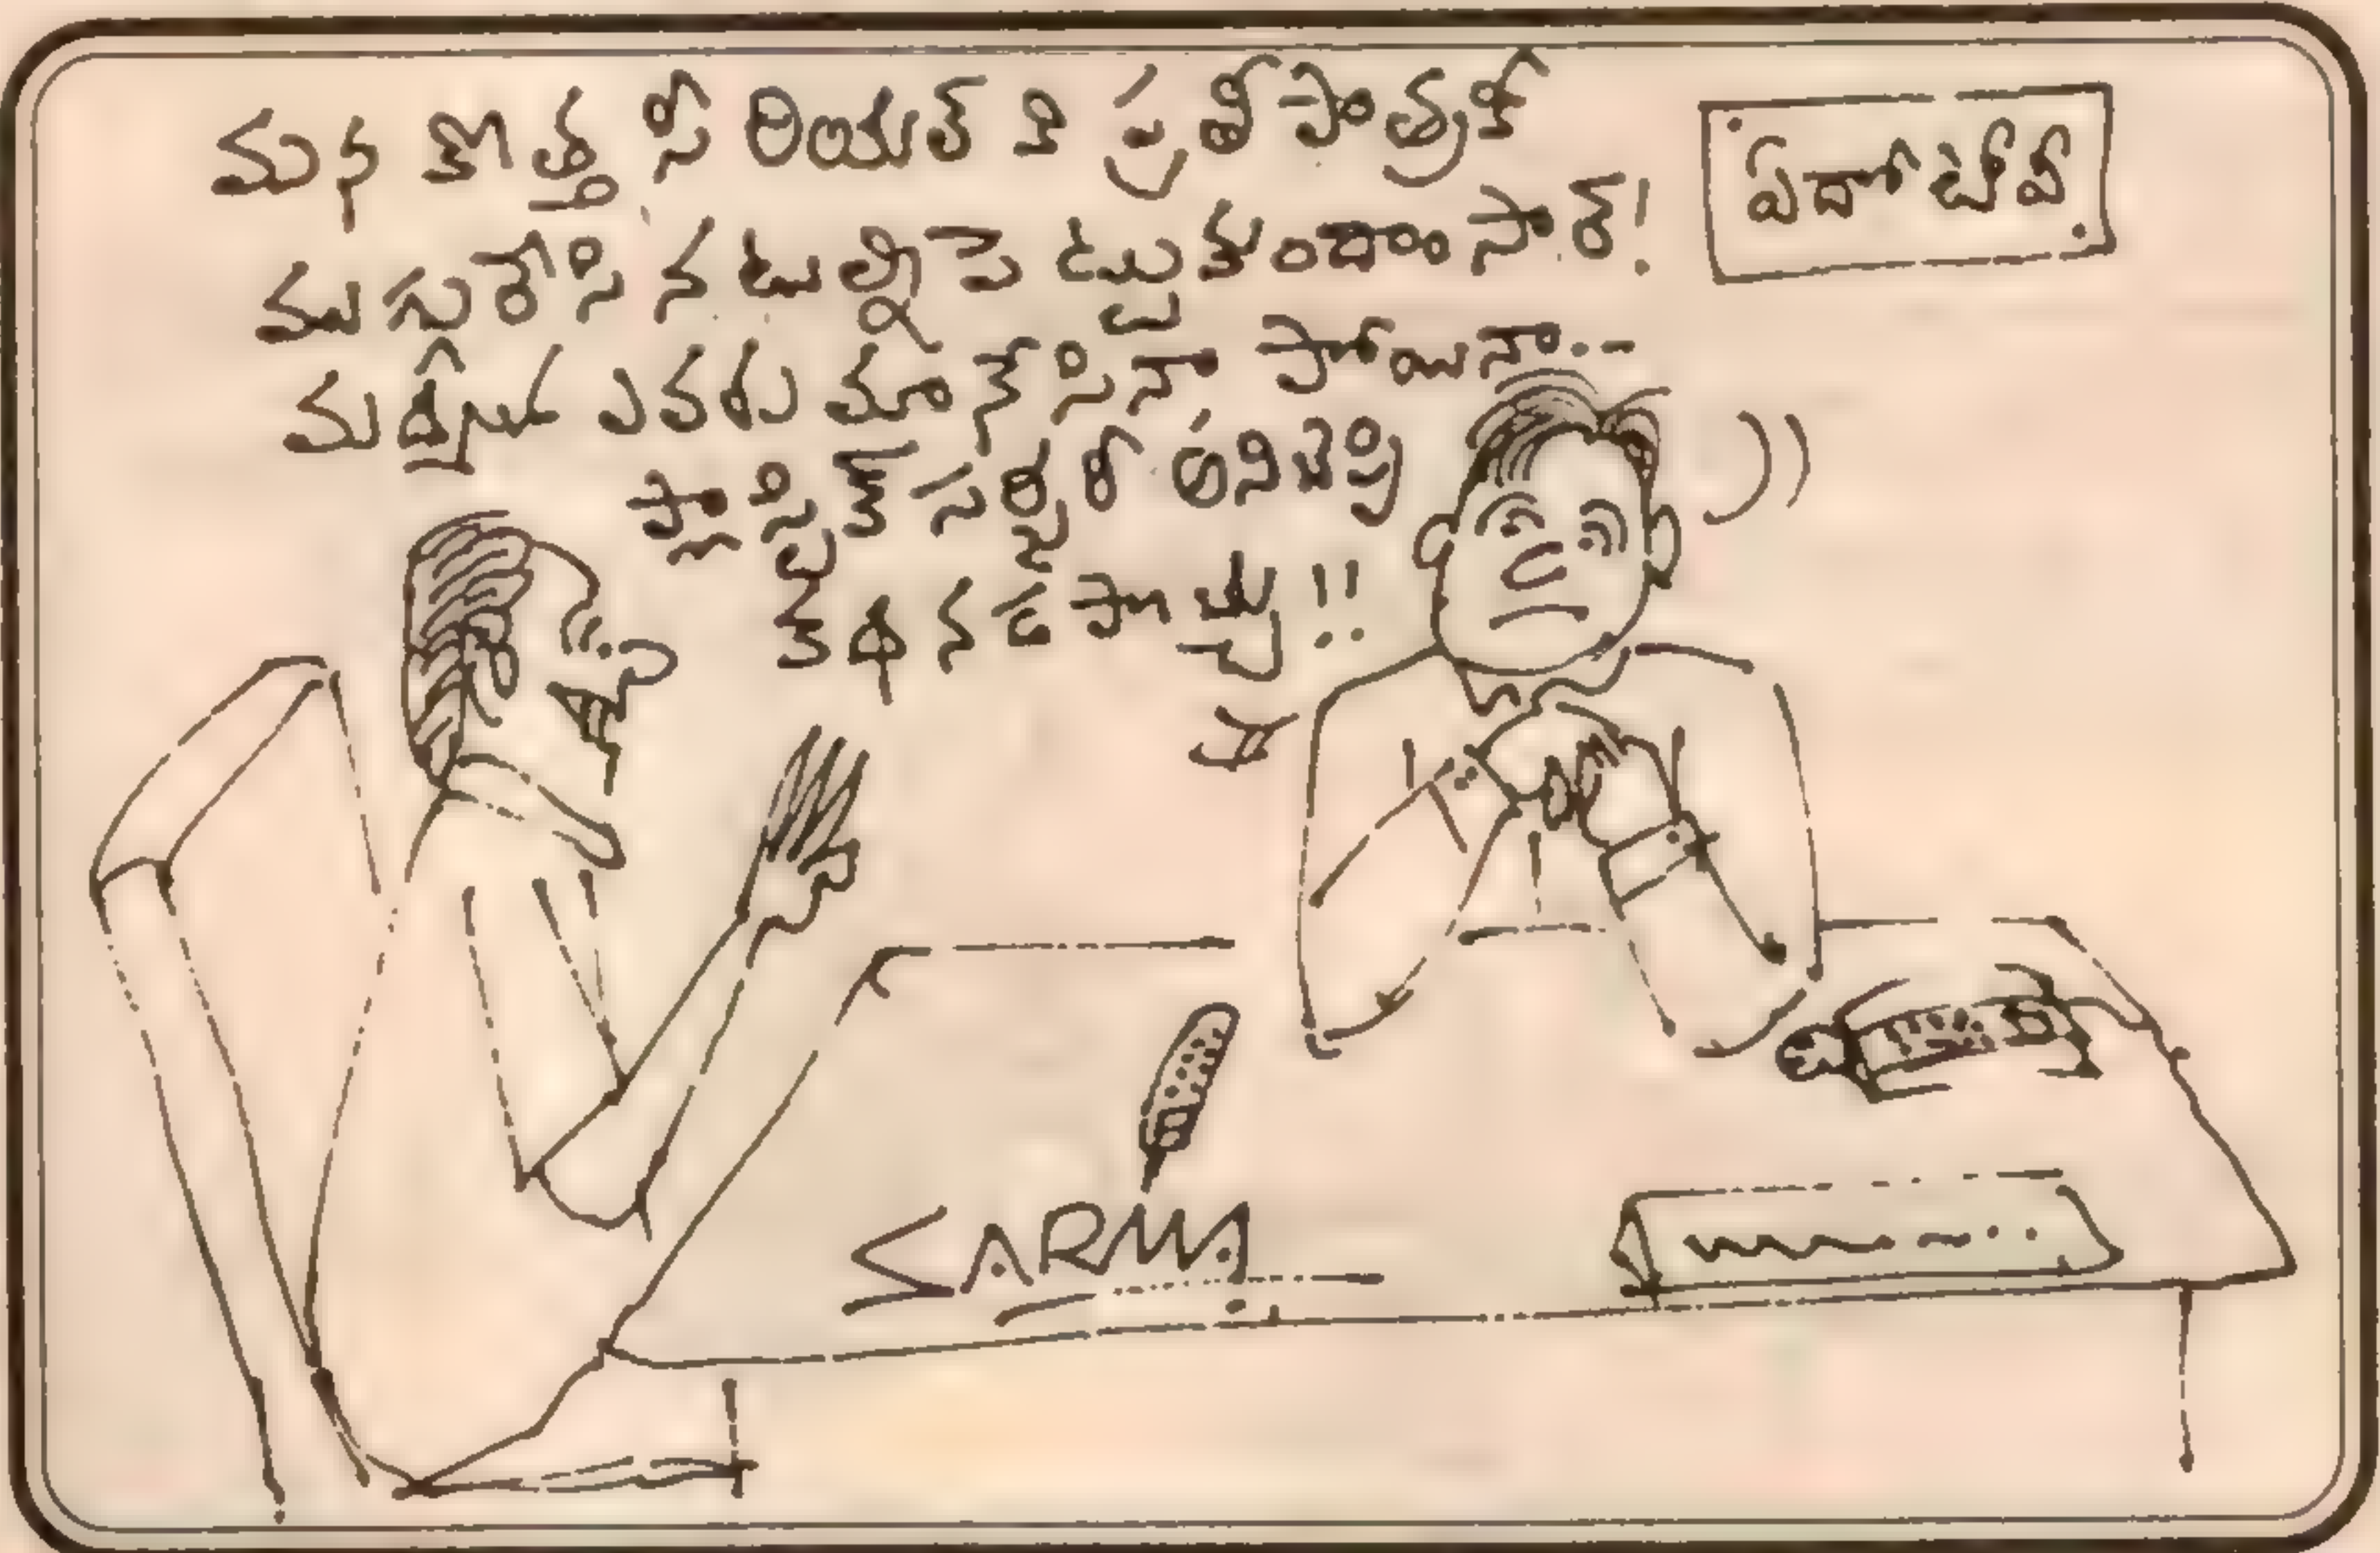 మన కొత్త సీరియల్ కి ప్రతీ పాత్రకీ
ముగ్గురేసి నటుల్ని పెట్టుకుందాం సార్!
మధ్యలో ఎవరు మానేసినా పోయినా..
ప్లాస్టిక్ సర్జరీ లనిచెప్పి
కథ నడపొచ్చు!!
ఏదో టీవీ
SARMA